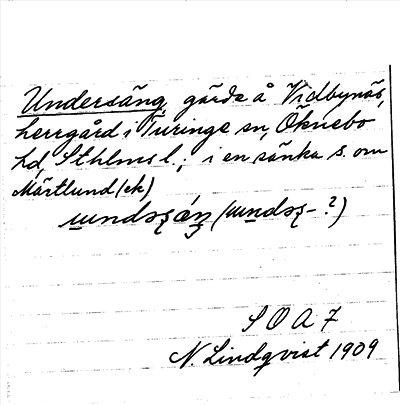 Undersäng, gärde å Vidbynäs,
herrgård i Turinge sn, Öknebo
hd, Sthlms l.; i en sänka s. om
Märtlund (ek)
S O A 7
N. Lindqvist 1909